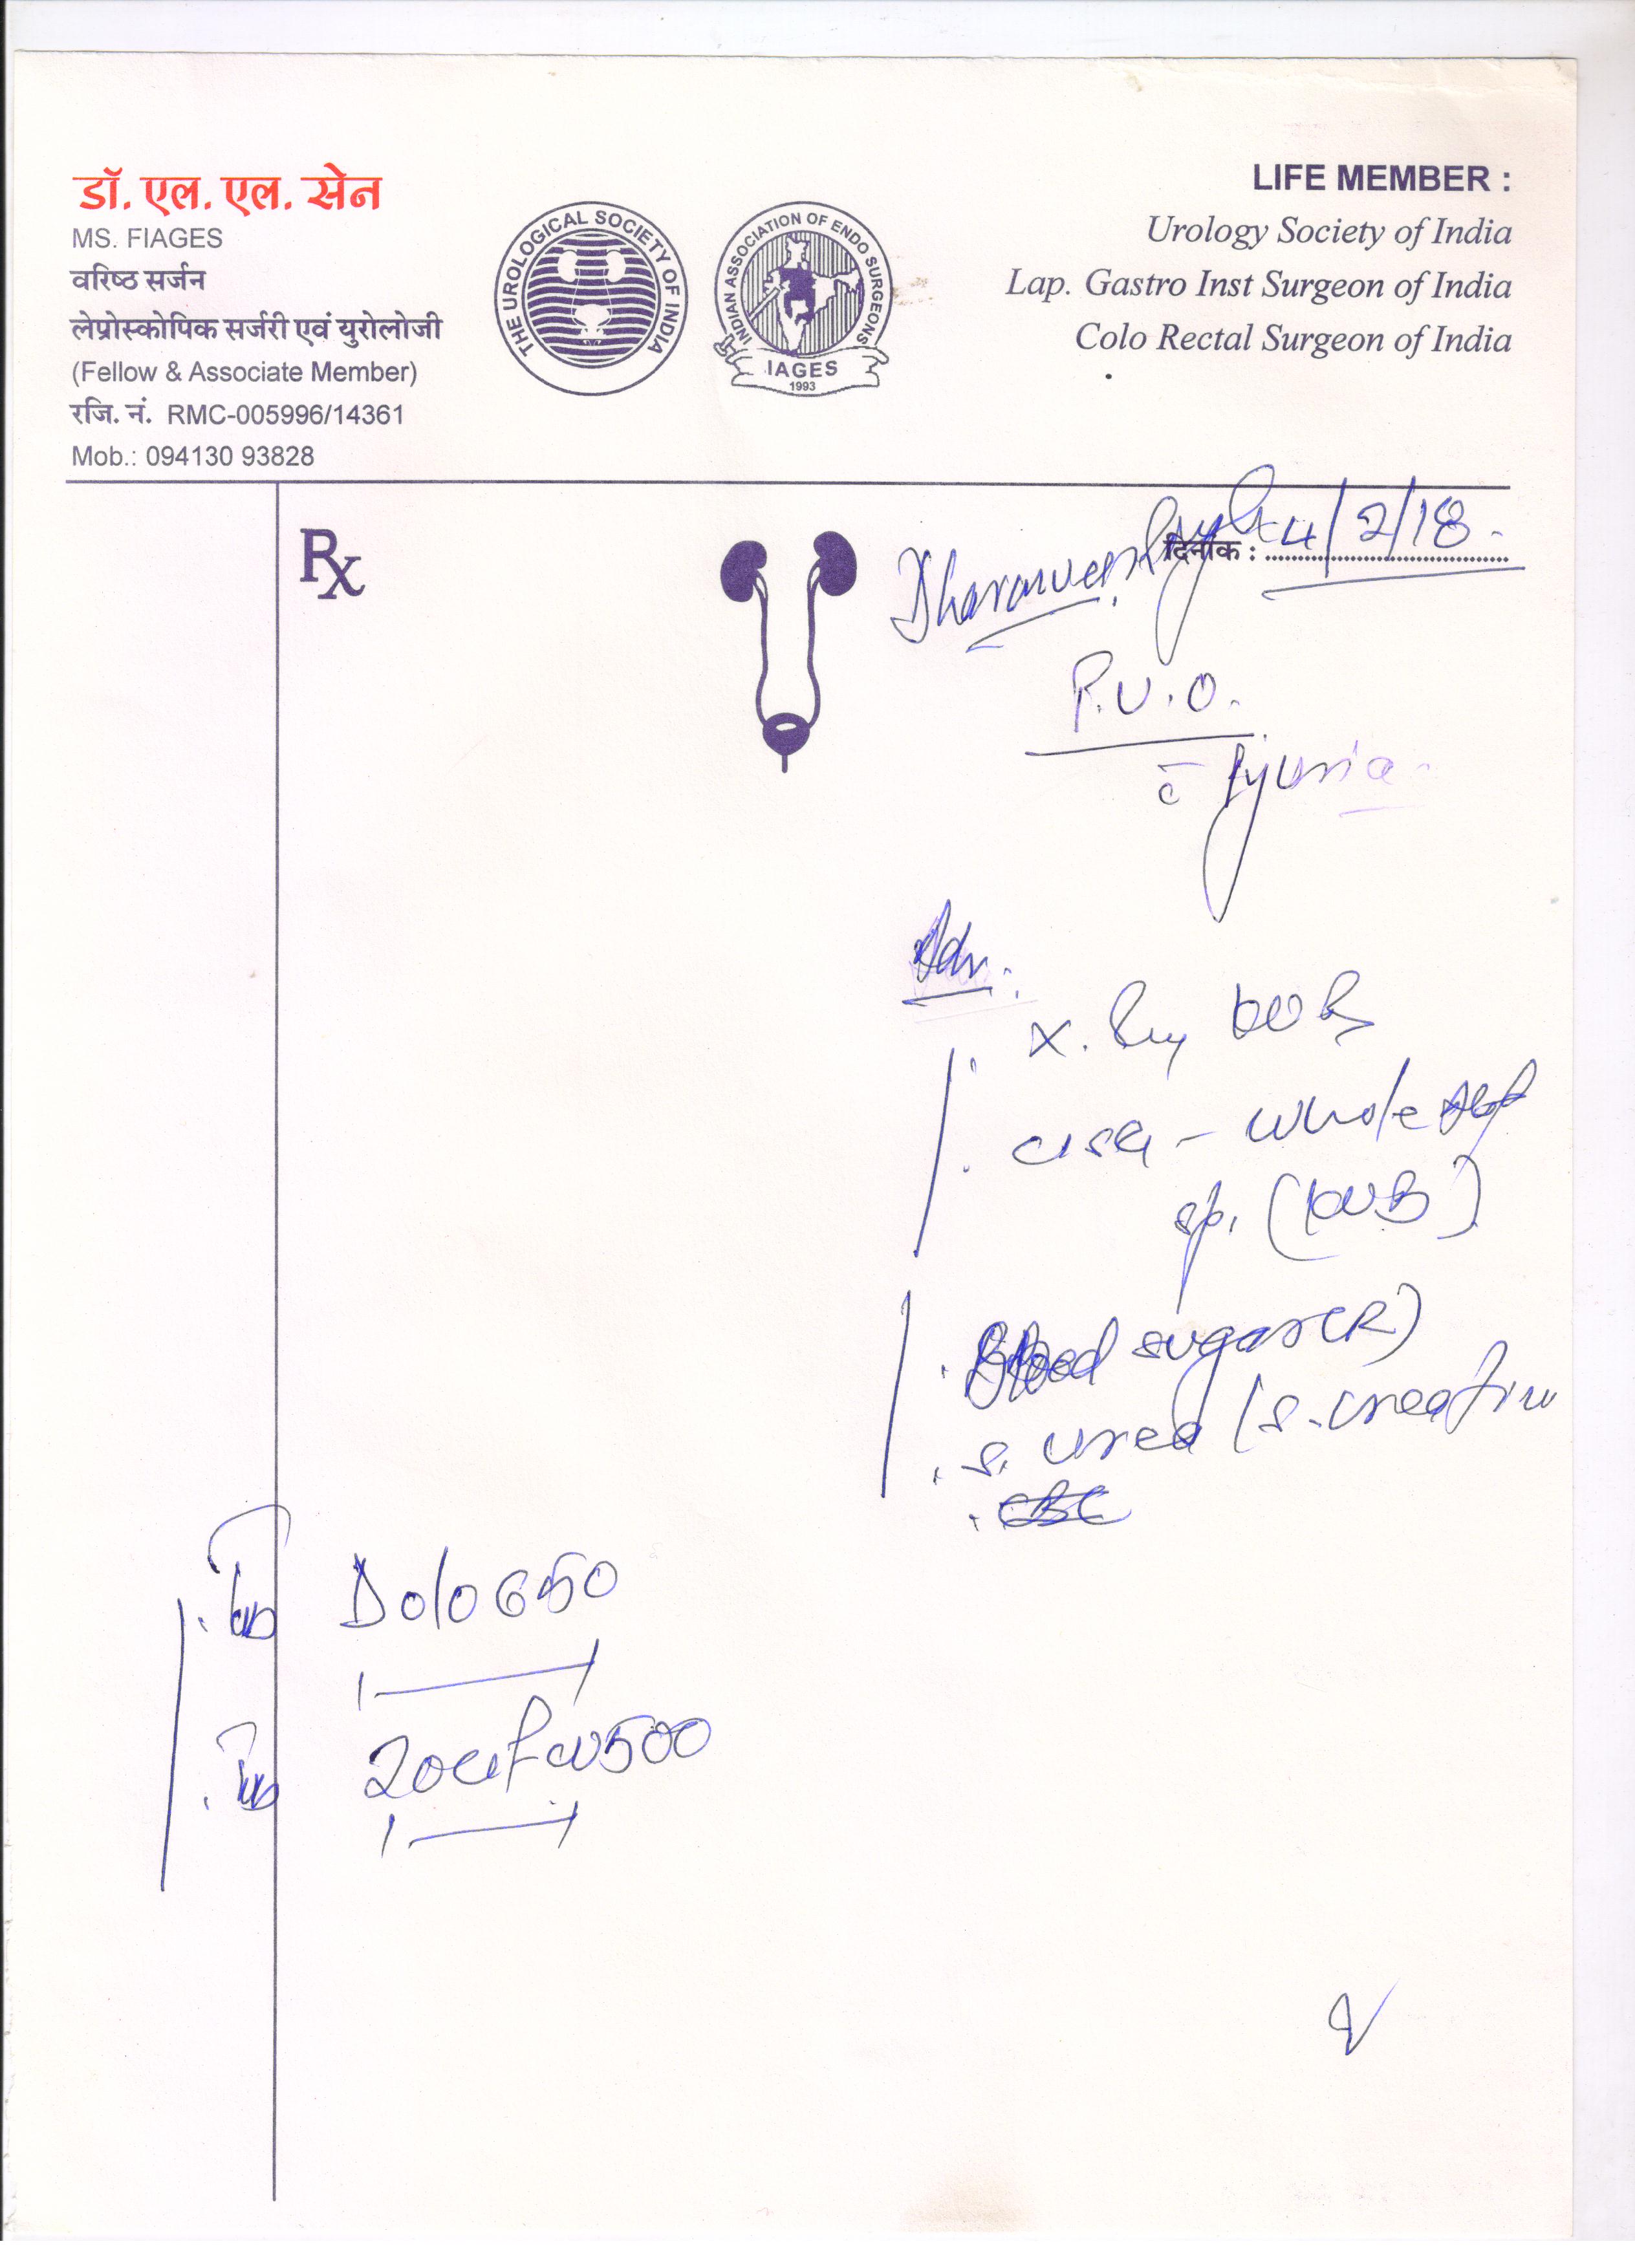 डॉ. एल. एल. सेन
MS. FIAGES
वरिष्ठ सर्जन
लेप्रोस्कोपिक सर्जरी एवं युरोलोजी
(Fellow & Associate Member)
रजि. नं. RMC-005996/14361
Mob.: 094130 93828
THE UROLOGICAL SOCIETY OF INDIA
INDIAN ASSOCIATION OF ENDO SURGEONS
IAGES
1993
LIFE MEMBER :
Urology Society of India
Lap. Gastro Inst Surgeon of India
Colo Rectal Surgeon of India
Rx
दिनांक : 4/2/18
P.U.O.
c̄ Pyuria
Adv.
X. Ray KUB
USG - whole
sp. (KUB)
Blood sugar (R)
S. urea / S. creatin
CBC
Tab Dolo 650
Tab 500